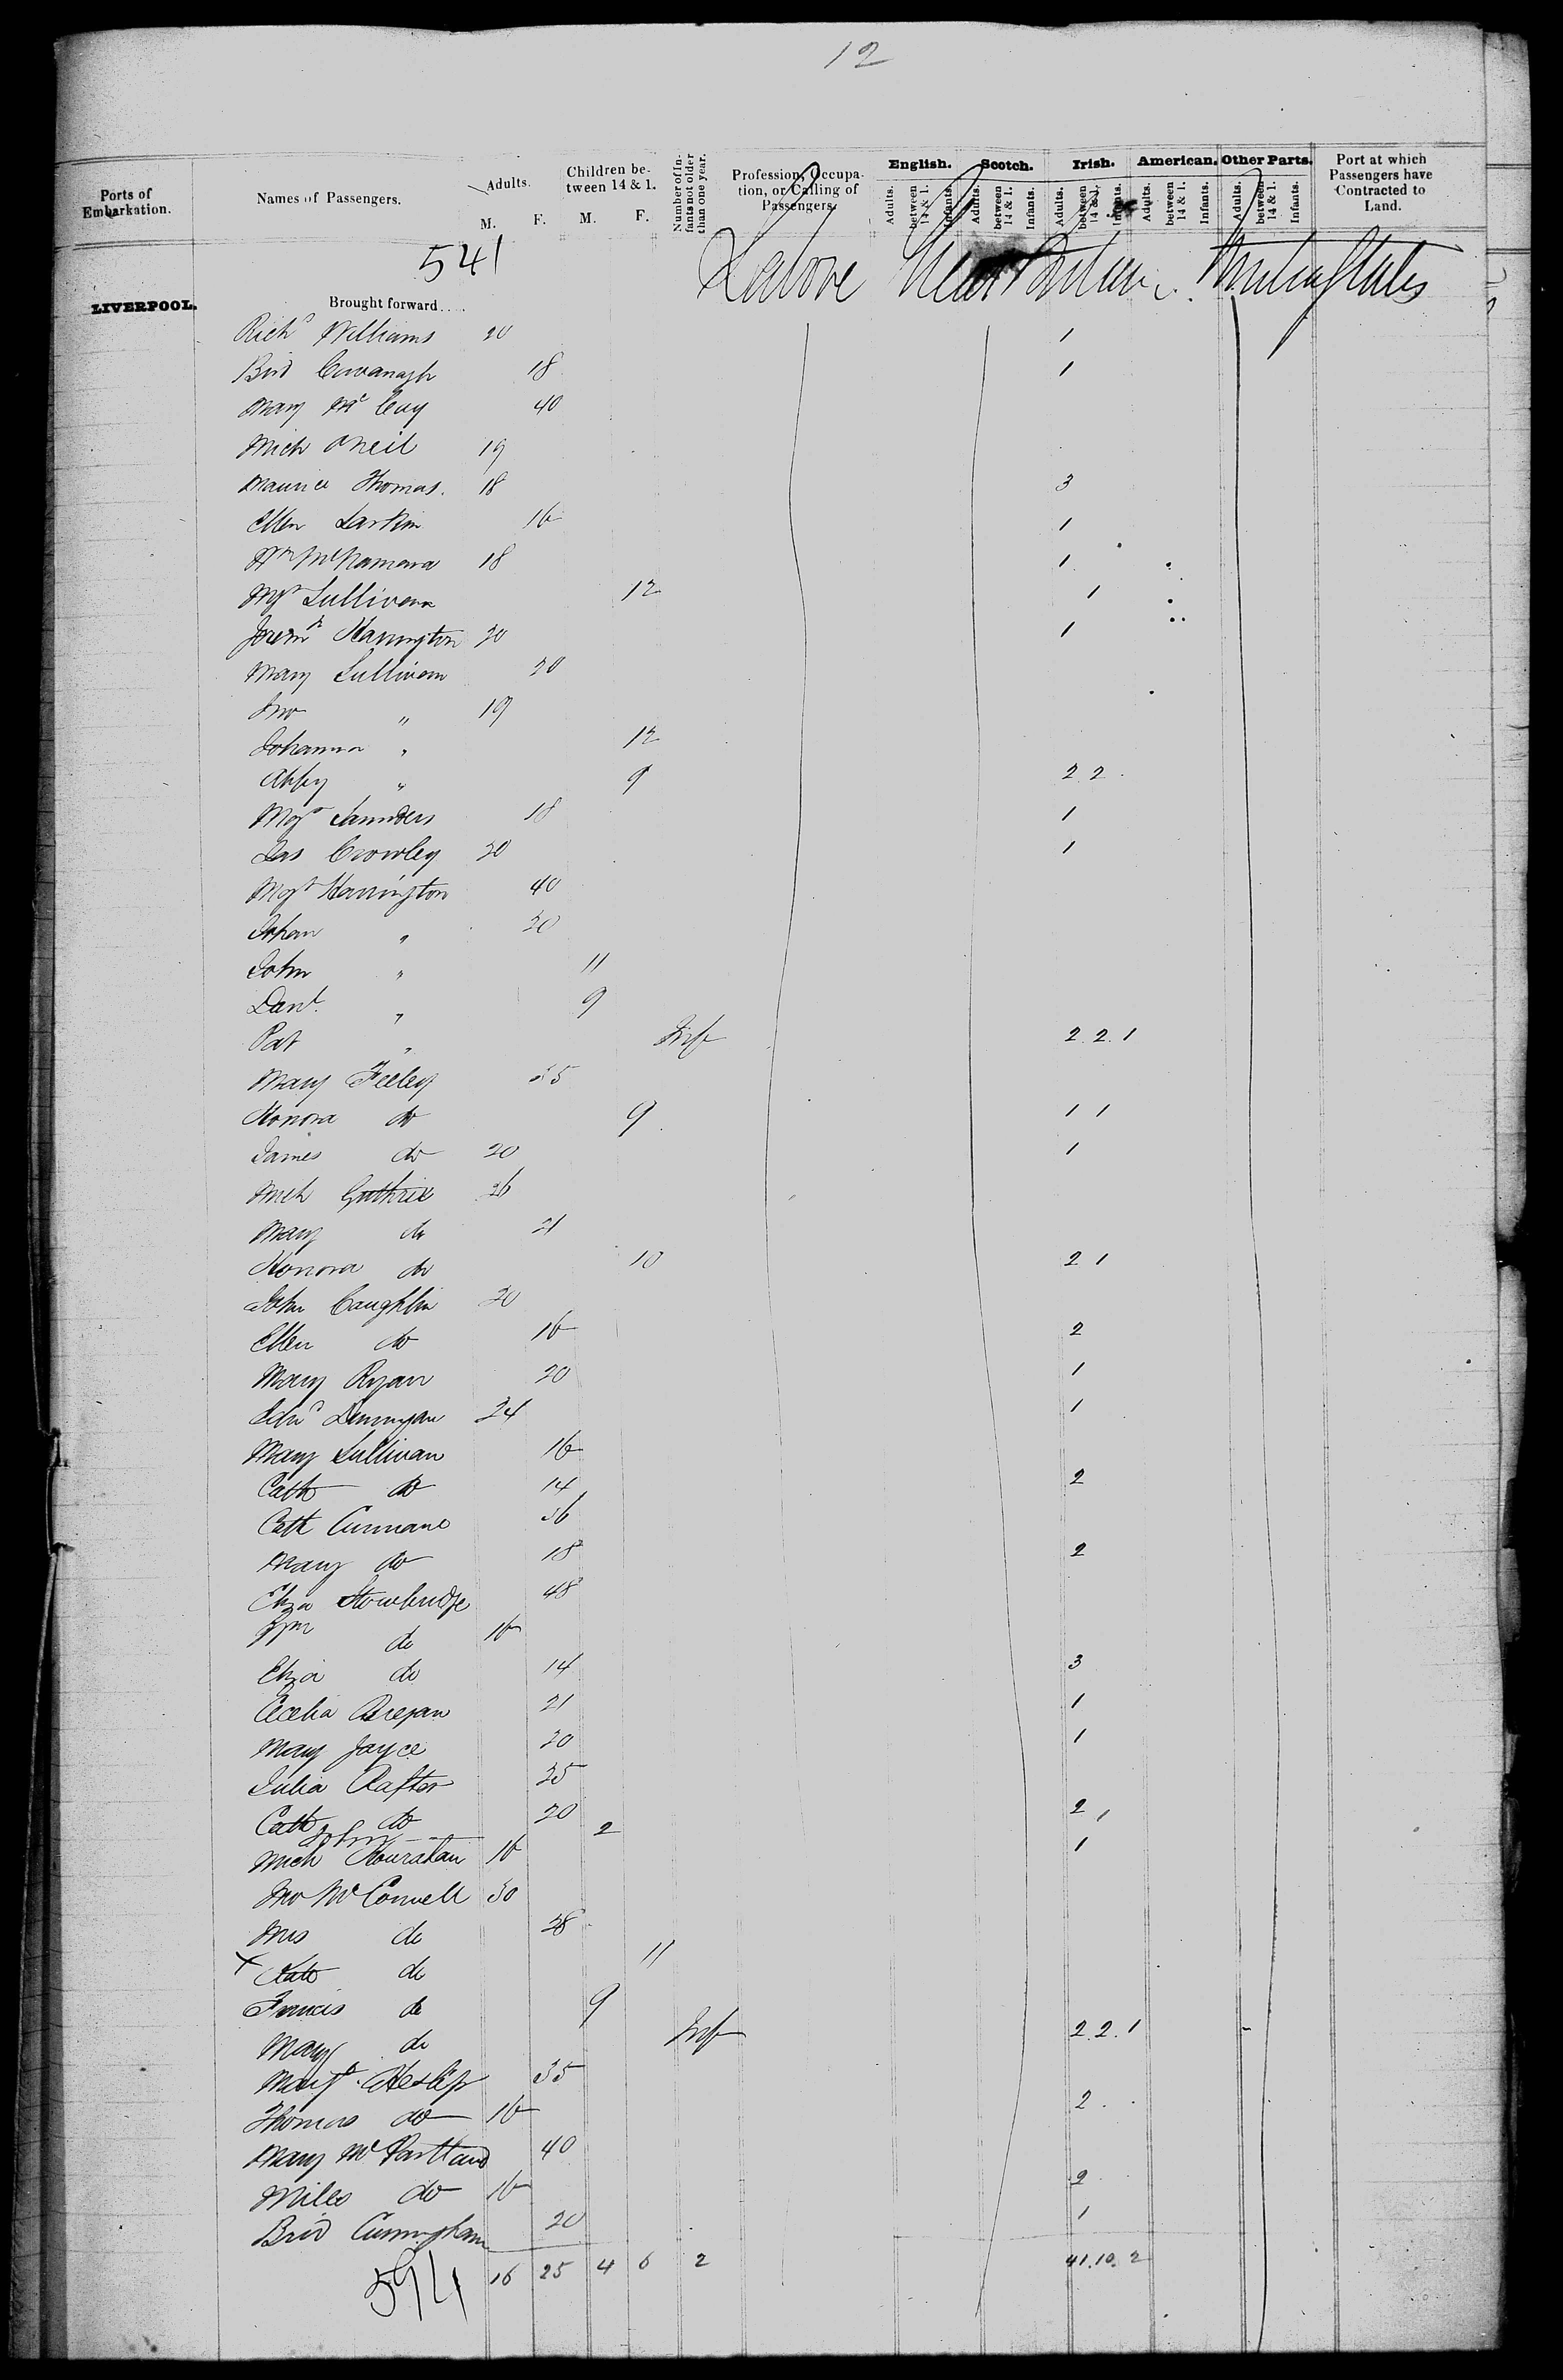 12
Ports of Embarkation. Names of Passengers. Adults. M. F. Children between 14 & 1. M. F. Number of Infants not older than one year. Profession, Occupation, or Calling of Passengers. English. Adults. between 14 & 1. Infants. Scotch. Adults. between 14 & 1. Infants. Irish. Adults. between 14 & 1. Infants. American. Adults. between 14 & 1. Infants. Other Parts. Adults. between 14 & 1. Infants. Port at which Passengers have Contracted to Land.
541
LIVERPOOL. Brought forward.... Labore Great Britain United States
Richd Williams 20 1
Brid Cavanagh 18 1
Mary Mc Cuy 40
Mich Oneil 19
Maurice Thomas. 18 3
Ellen Larkin 16 1
Wm McNamara 18 1
Mgt Sullivan 12 1
Jerem Harrington 20 1
Mary Sullivan 20
Jno " 19
Johanna " 12
Abby " 9 2 2
Mgt Saunders 18 1
Jas Crowley 30 1
Mgt Harrington 40
Johan " 20
John " 11
Danl. " 9
Pat " Inf 2 2 1
Mary Feeley 35
Honora do 9 1 1
James do 20 1
Mich Guthrie 26
Mary do 21
Honora do 10 2 1
John Caughlin 20
Ellen do 16 2
Mary Ryan 20 1
Edwd 24 1
Mary Sullivan 16
Cath do 14 2
Cath Cunnane 36
Mary do 18 2
Eliza Stowbridge 48
Wm do 16
Eliza do 14 3
Cecelia Bregan 21 1
Mary Joyce 20 1
Julia Rafter 25
Cath do 20 2 1
John -- 2
Mich Hourahan 16 1
Jno McConnell 30
Mrs do 28
x Kate do 11
Francis do 9
Mary do Inf 2 2 1
Margt Heslip 35
Thomas do 16 2
Mary McPartland 40
Miles do 16 2
Brid Cunningham 20 1
594 16 25 4 6 2 41. 10. 2